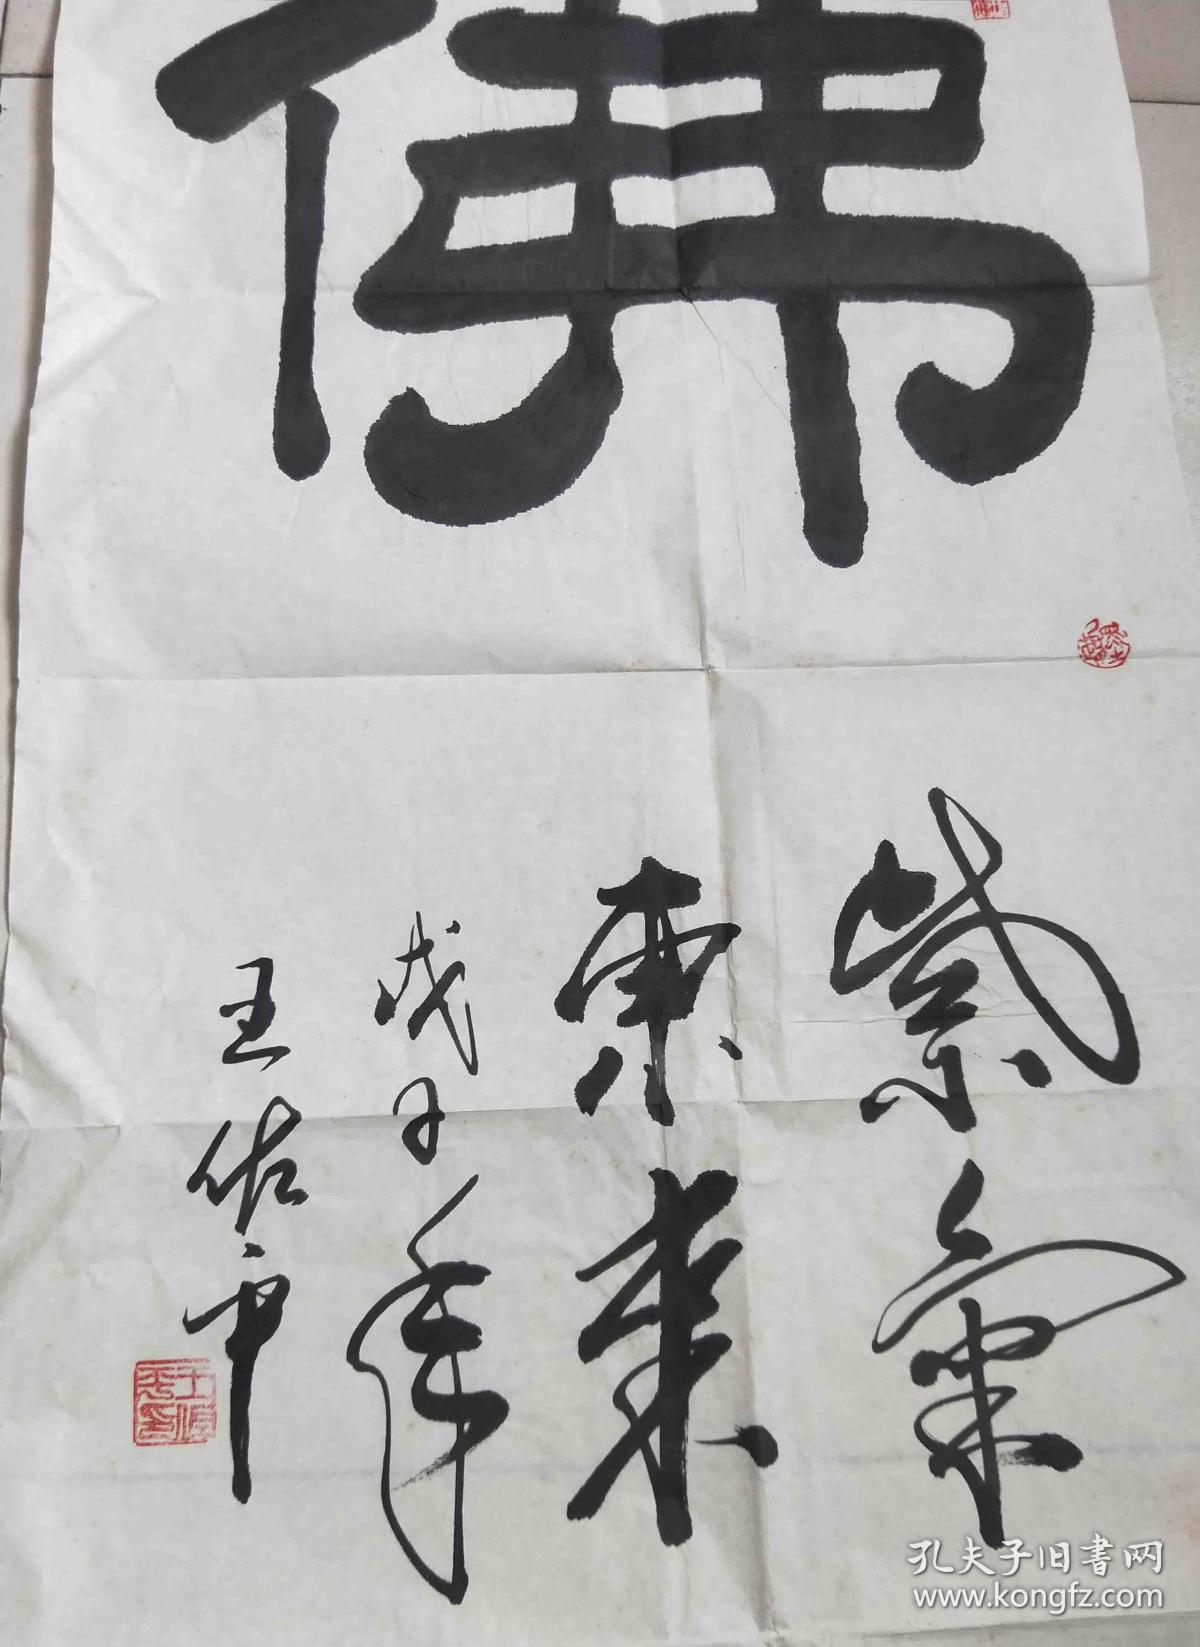 佛
紫氣
東來
戊子年
王佑平
孔夫子旧書网
www.kongfz.com